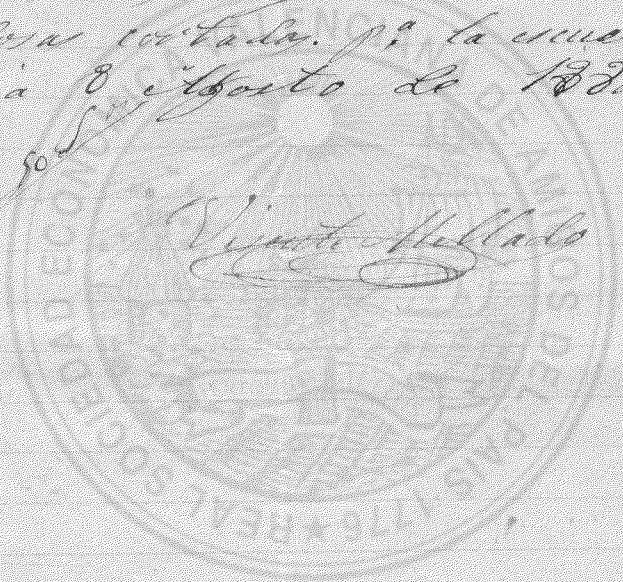 cortadas. pª la
8 Agosto de 188
50
Vicente Mellado
REAL SOCIEDAD ECONÓMICA VALENCIANA DE AMIGOS DEL PAIS 1776